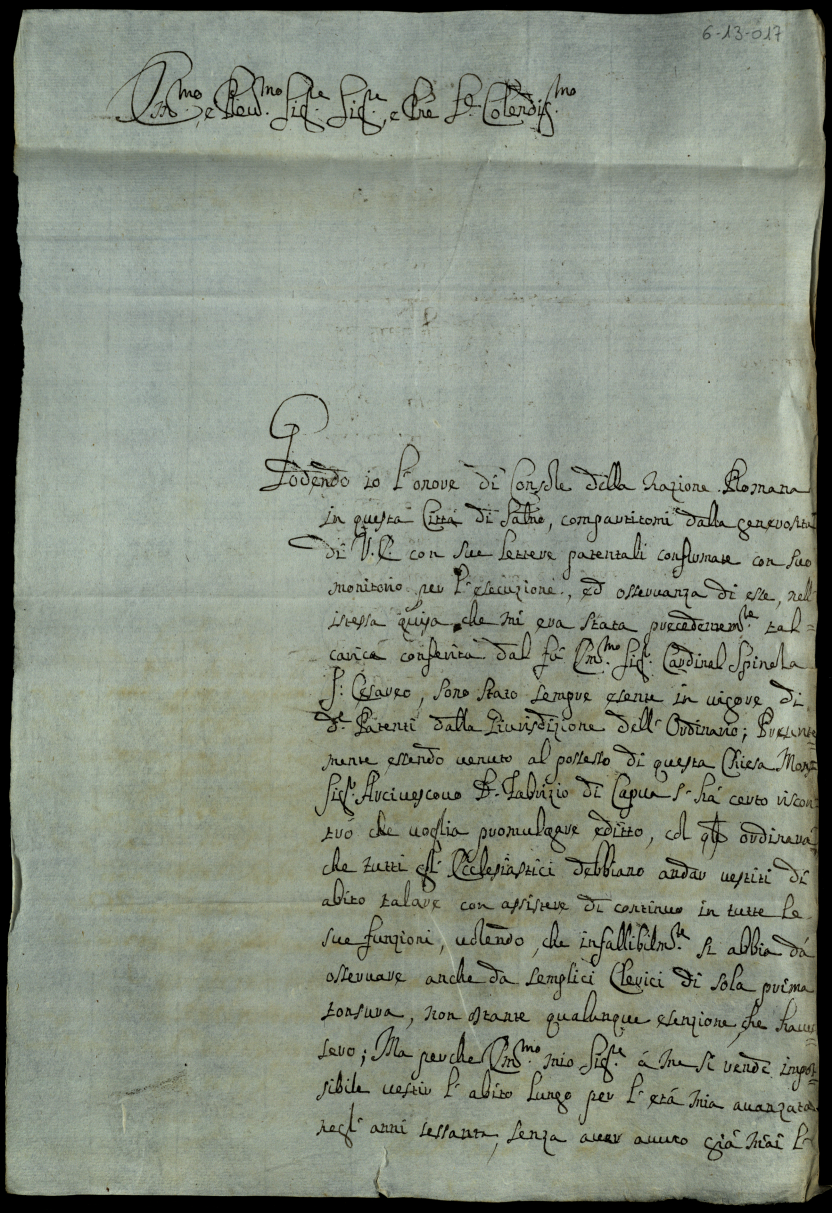 6-13-017
Ill.mo, e Rev.mo Sig.re Sig.re, e Prõe Col.endis.mo
Godendo io l'onore di Console della Nazione Romana
in questa Città di Salño, compartitomi dalla generosità
di V.E. con sue lettere patentali confirmate con suo
monitorio per l'esecuzione, ed osservanza di esse, nell'
istessa guisa che mi era stata precedentem.te tal=
carica conferita dal fù Em.mo Sig.r Cardinal Spinola
S. Cesareo, sono stato sempre esente in vigore di
d.e Patenti dalla Giurisdizione dell'Ordinario; Presente=
mente essendo venuto al possesso di questa Chiesa Mons.
Sig.r Arcivescovo D. Fabrizio di Capua s'hà certo riscon=
tro che voglia promulgare editto, col qle ordinerà,
che tutti gl'Ecclesiastici debbiano andar vestiti di
abito talare con assistere di continuo in tutte le
sue funzioni, volendo, che infallibilm.te si abbia dà
osservare anche da semplici Clerici di sola prima
tonsura, non ostante qualunque esenzione, che haves=
sero; Ma perche Em.mo mio Sig.re à me si rende impos=
sibile vestir l'abito lungo per l'età mia avanzata
negl'anni sessanta, senza aver avuto già mai l'